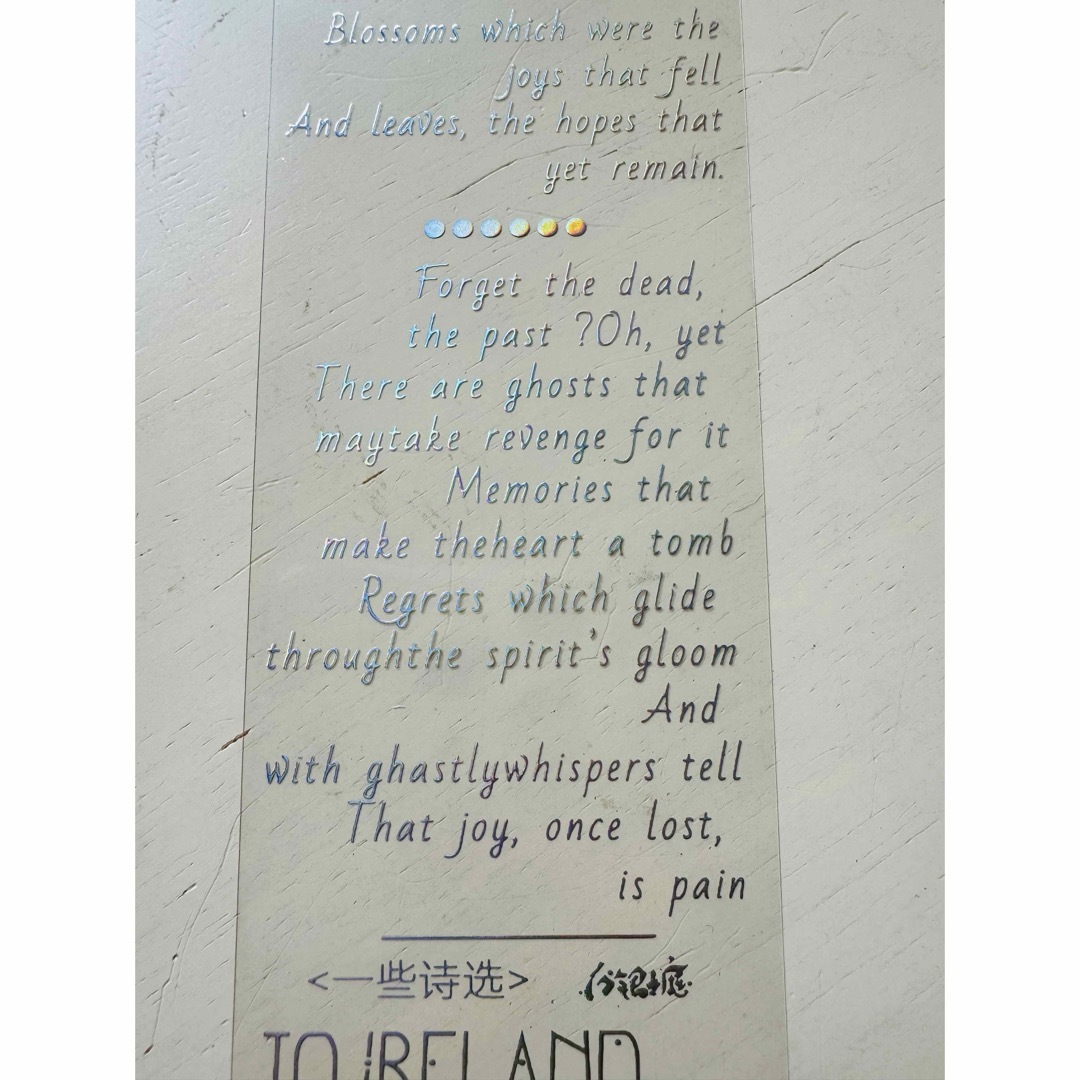 Blossoms which were the
joys that fell
And leaves, the hopes that
yet remain.
Forget the dead,
the past ?Oh, yet
There are ghosts that
maytake revenge for it
Memories that
make theheart a tomb
Regrets which glide
throughthe spirit's gloom
And
with ghastlywhispers tell
That joy, once lost,
is pain
<一些诗选>
TO IRELAND